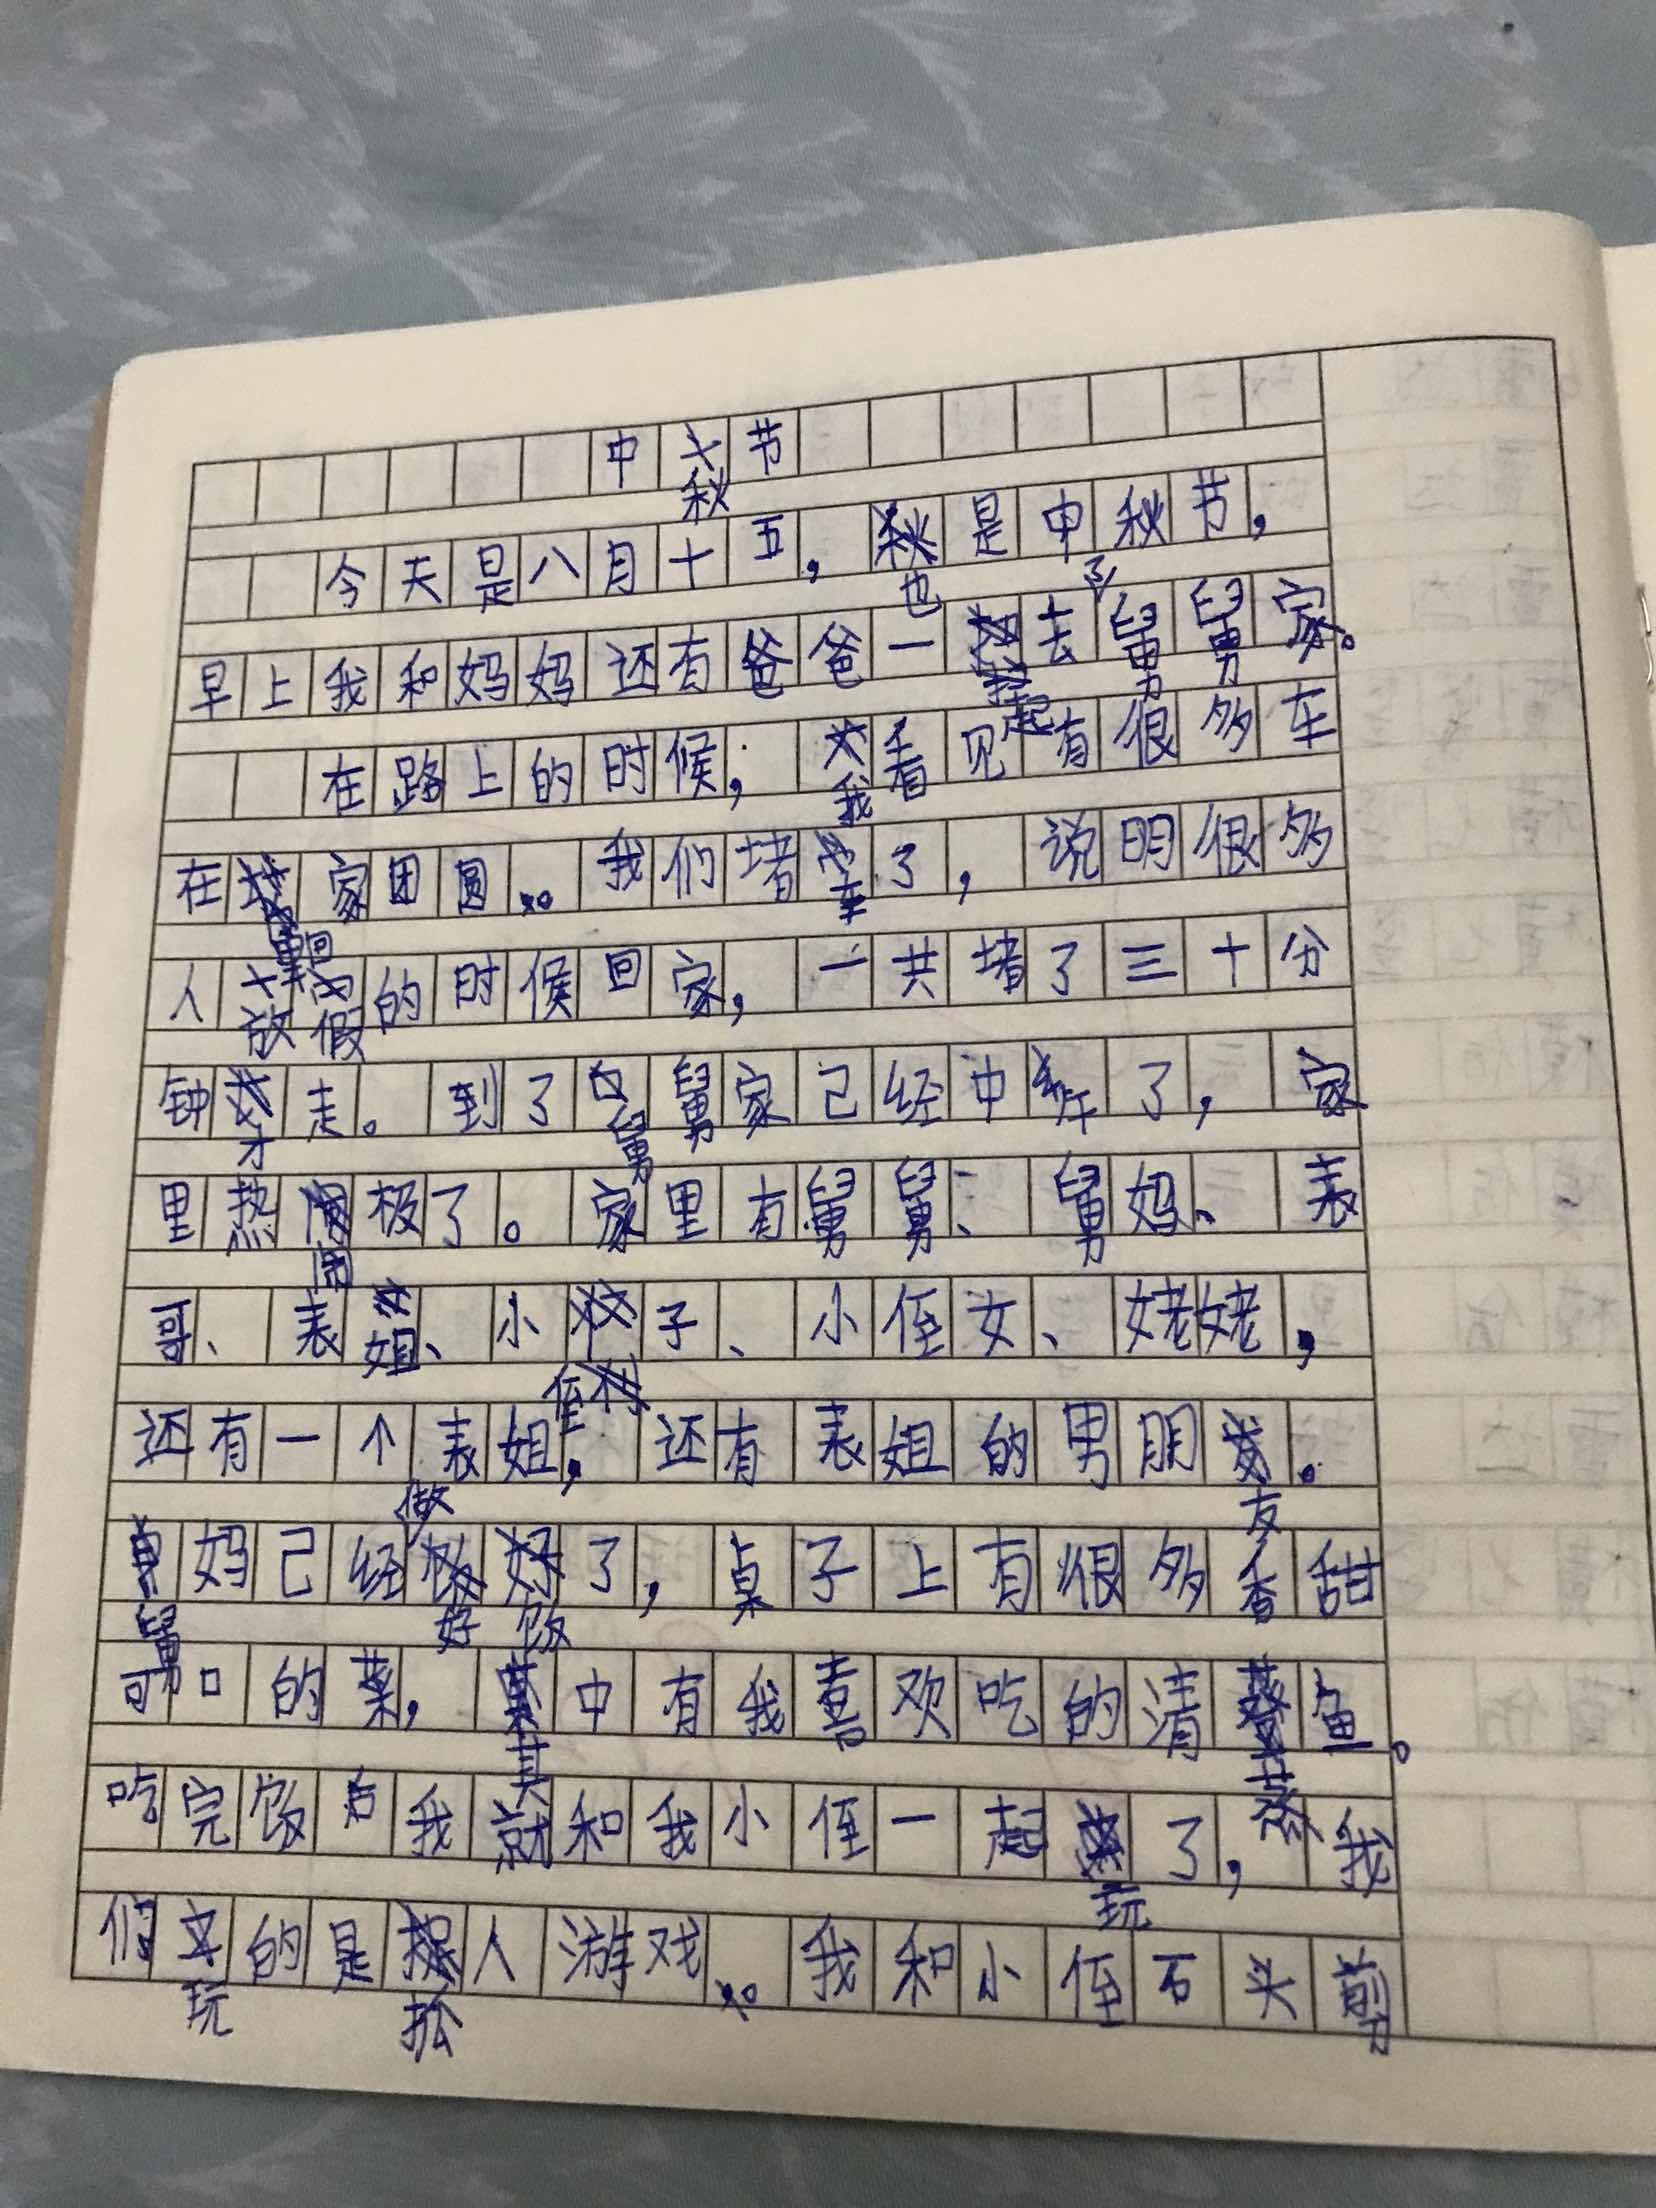 中秋节
今天是八月十五，也是中秋节，
早上我和妈妈还有爸爸一起去了舅舅家。
在路上的时候，我看见有很多车
在回家团圆。我们堵车了，说明很多
人放假的时候回家，一共堵了三十分
钟才走。到了舅舅家己经中午了，家
里热闹极了。家里有舅舅、舅妈、表
哥、表姐、小侄子、小侄女、姥姥，
还有一个表姐，还有表姐的男朋友。
舅妈己经做好饭了，桌子上有很多香甜
可口的菜，其中有我喜欢吃的清蒸鱼。
吃完饭后我就和我小侄一起玩了，我
们玩的是抓人游戏。我和小侄石头剪